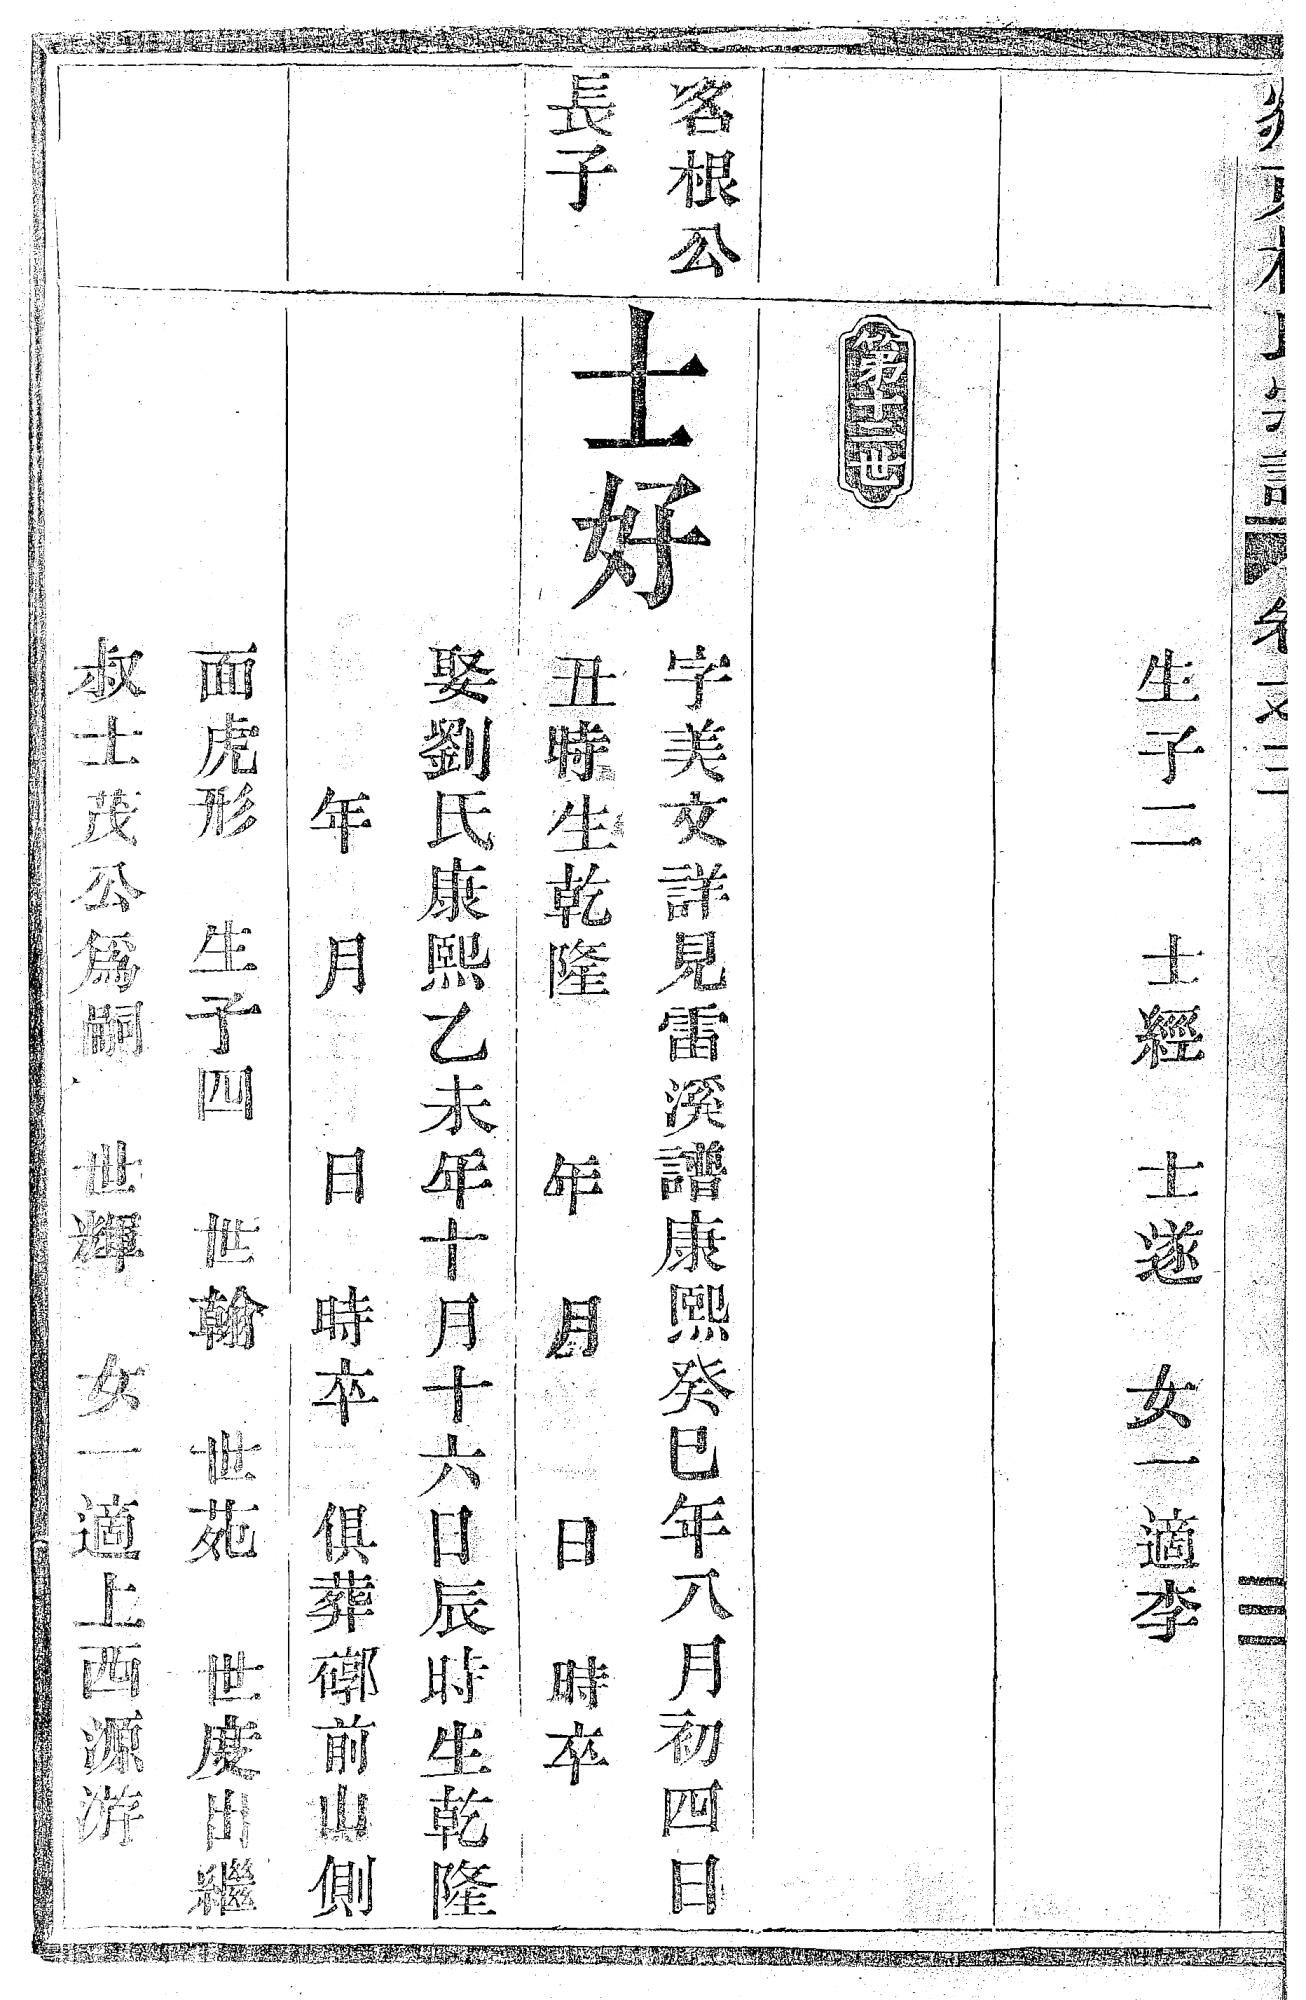 生子二　士經　士遂　女一適李
第十三世
名根公
長子
士好
字美文詳見雷溪譜康熙癸巳年八月初四日
丑時生乾隆　年　月　日　時卒
娶劉氏康熙乙未年十月十六日辰時生乾隆
年　月　日　時卒　俱葬𥕏前山側
面虎形　生子四　世翰　世苑　世度出繼
叔士茂公爲嗣　世輝　女一適上西源游